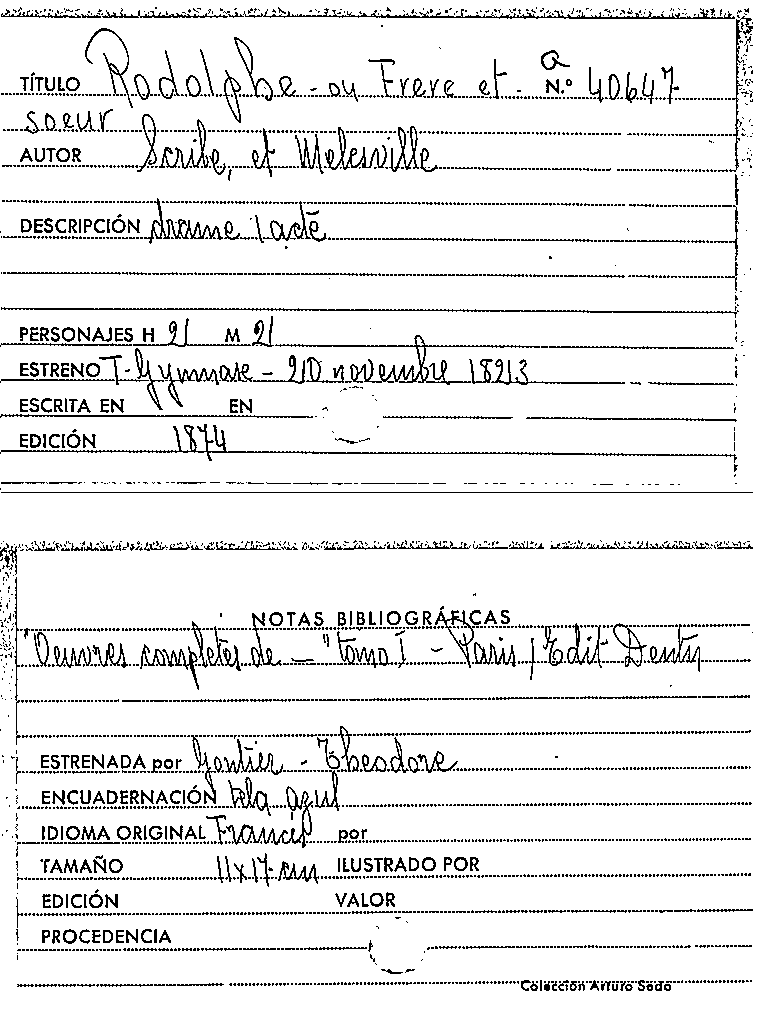 a
TÍTULO Rodolphe - ou Frere et - N.º 40647
soeur
AUTOR Scribe, et Melesville
DESCRIPCIÓN drame 1 acte
PERSONAJES H 2/ M 2/
ESTRENO T- Gymnase - 20 novembre 1823
ESCRITA EN EN
EDICIÓN 1874
NOTAS BIBLIOGRÁFICAS
"Oeuvres completes de - " tomo I - Paris / Edit Dentu
ESTRENADA por Gontier - Theodore
ENCUADERNACIÓN tela azul
IDIOMA ORIGINAL Francés por
TAMAÑO 11x17 cm ILUSTRADO POR
EDICIÓN VALOR
PROCEDENCIA
Colección Arturo Sedó